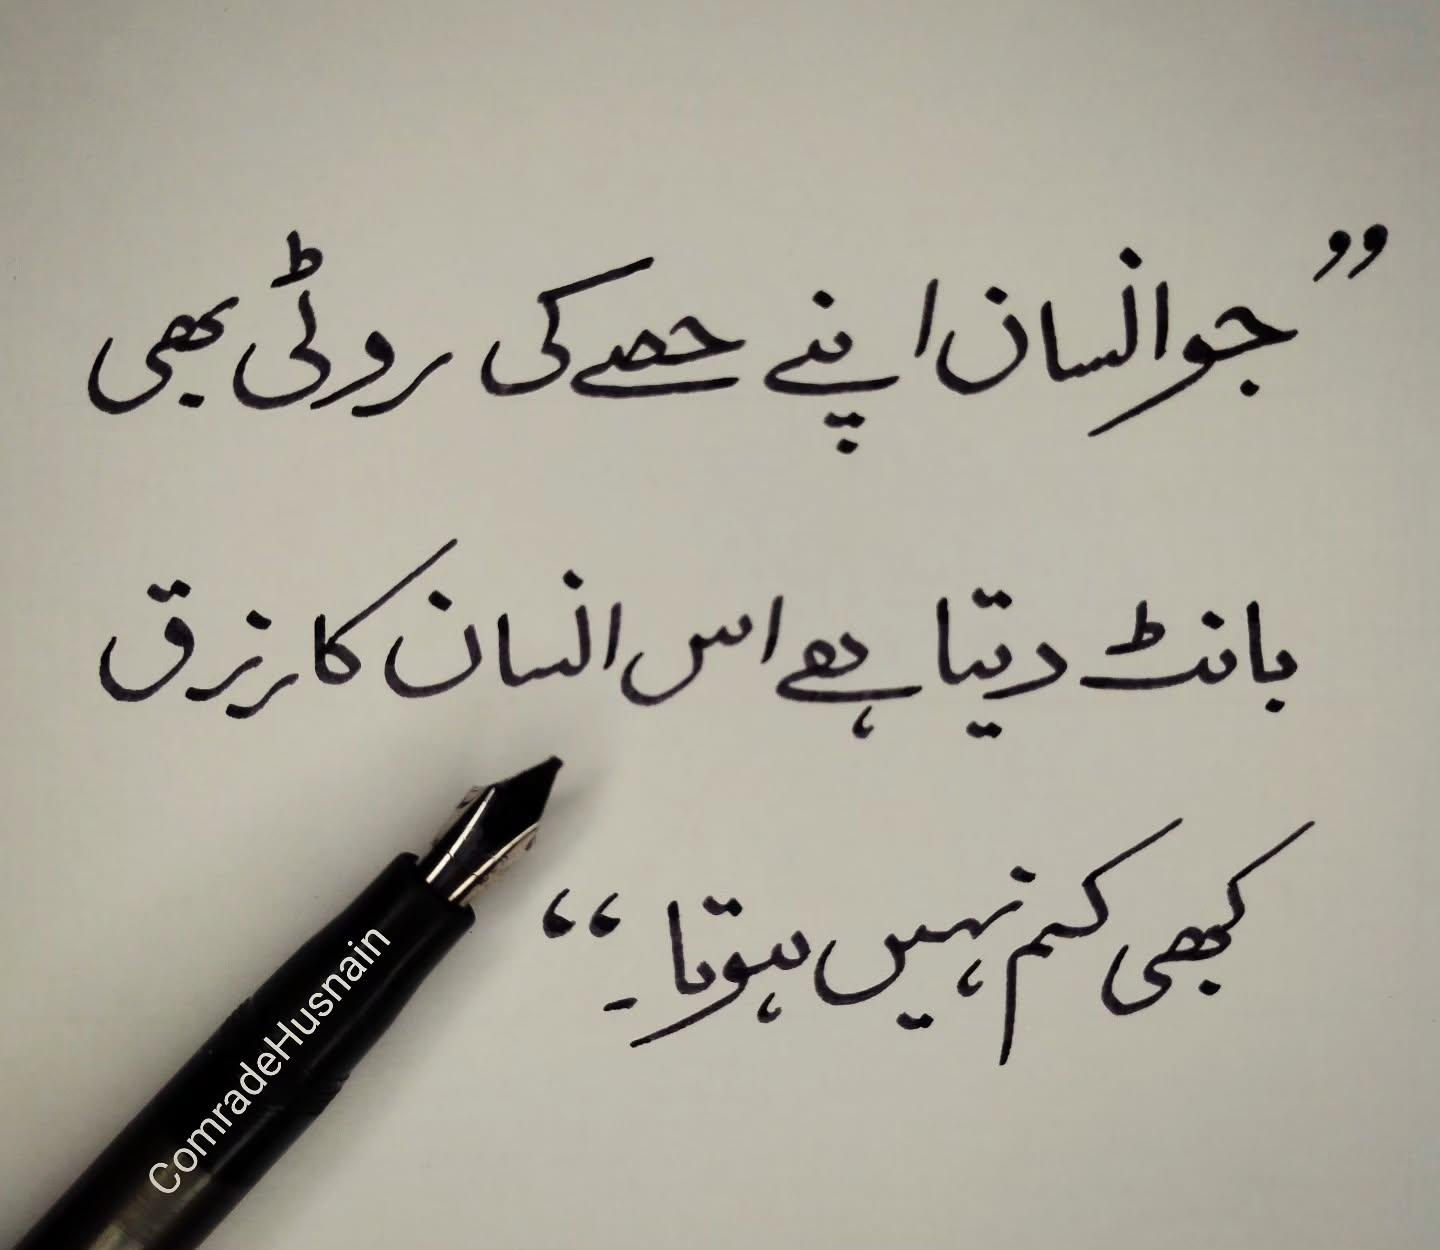 ”جو انسان اپنے حصے کی روٹی بھی
بانٹ دیتا ہے اس انسان کا رزق
کبھی کم نہیں ہوتا۔“
ComradeHusnain